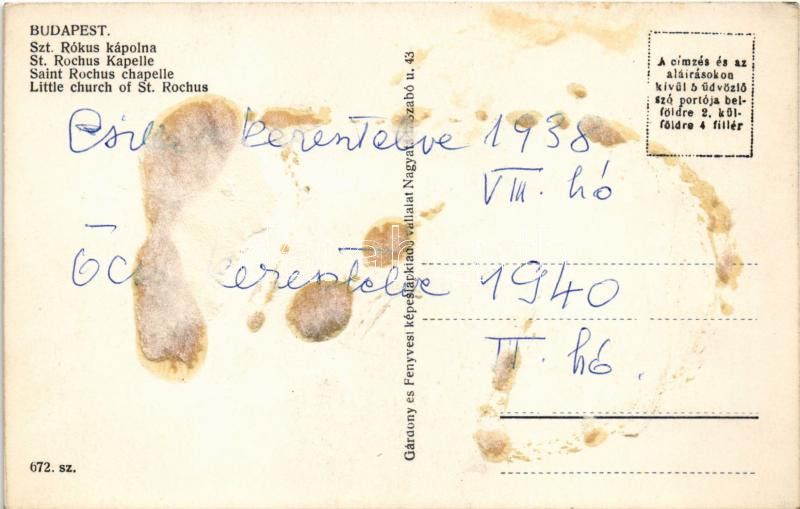 BUDAPEST.
Szt. Rókus kápolna
St. Rochus Kapelle
Saint Rochus chapelle
Little church of St. Rochus
A címzés és az
aláírásokon
kívül 5 üdvözlő
szó portója bel-
földre 2, kül-
földre 4 fillér
keresztelve 1938
VIII. hó
keresztelve 1940
II. hó.
Gárdony és Fenyvesi képeslapkiadó vállalat Szabó u. 43
672. sz.